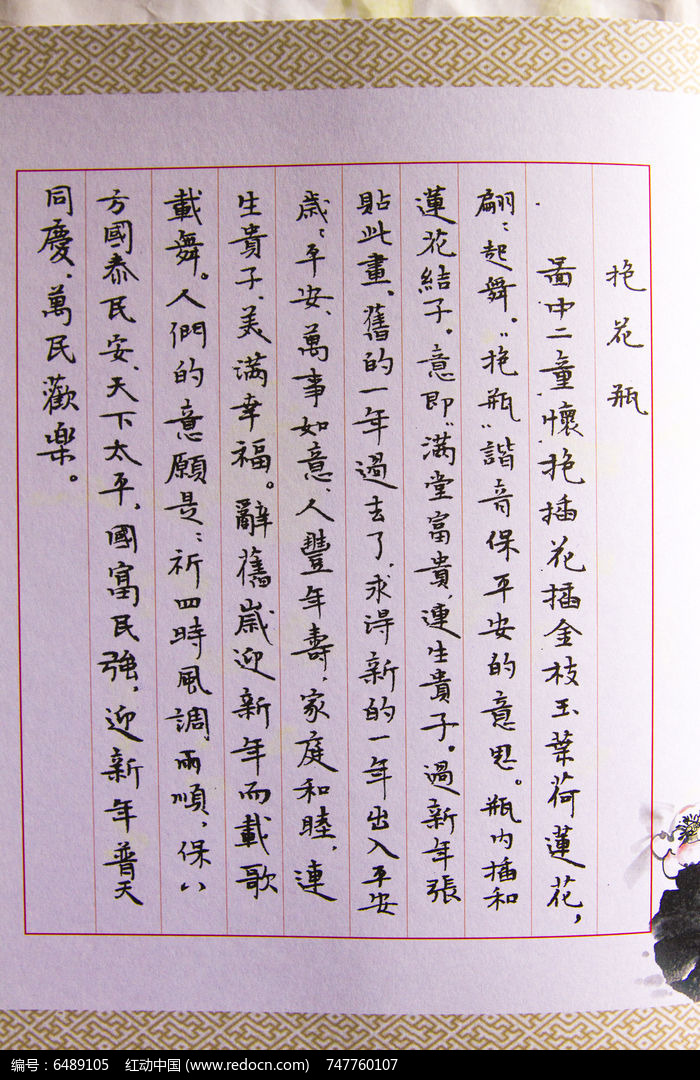 抱花瓶
圖中二童懷抱插花插金枝玉葉荷蓮花，
翩：起舞。"抱瓶"諧音保平安的意思。瓶内插和
蓮花結子。意即"滿堂富貴，連生貴子。過新年張
貼此畫、舊的一年過去了，求得新的一年出入平安
歲：平安、萬事如意、人豐年壽、家庭和睦，連
生貴子、美滿幸福。辭舊歲迎新年而載歌
載舞。人們的意願是：祈四時風調雨順，保八
方國泰民安、天下太平、國富民強，迎新年普天
同慶、萬民歡樂。
编号：6489105 红动中国 (www.redocn.com) 747760107